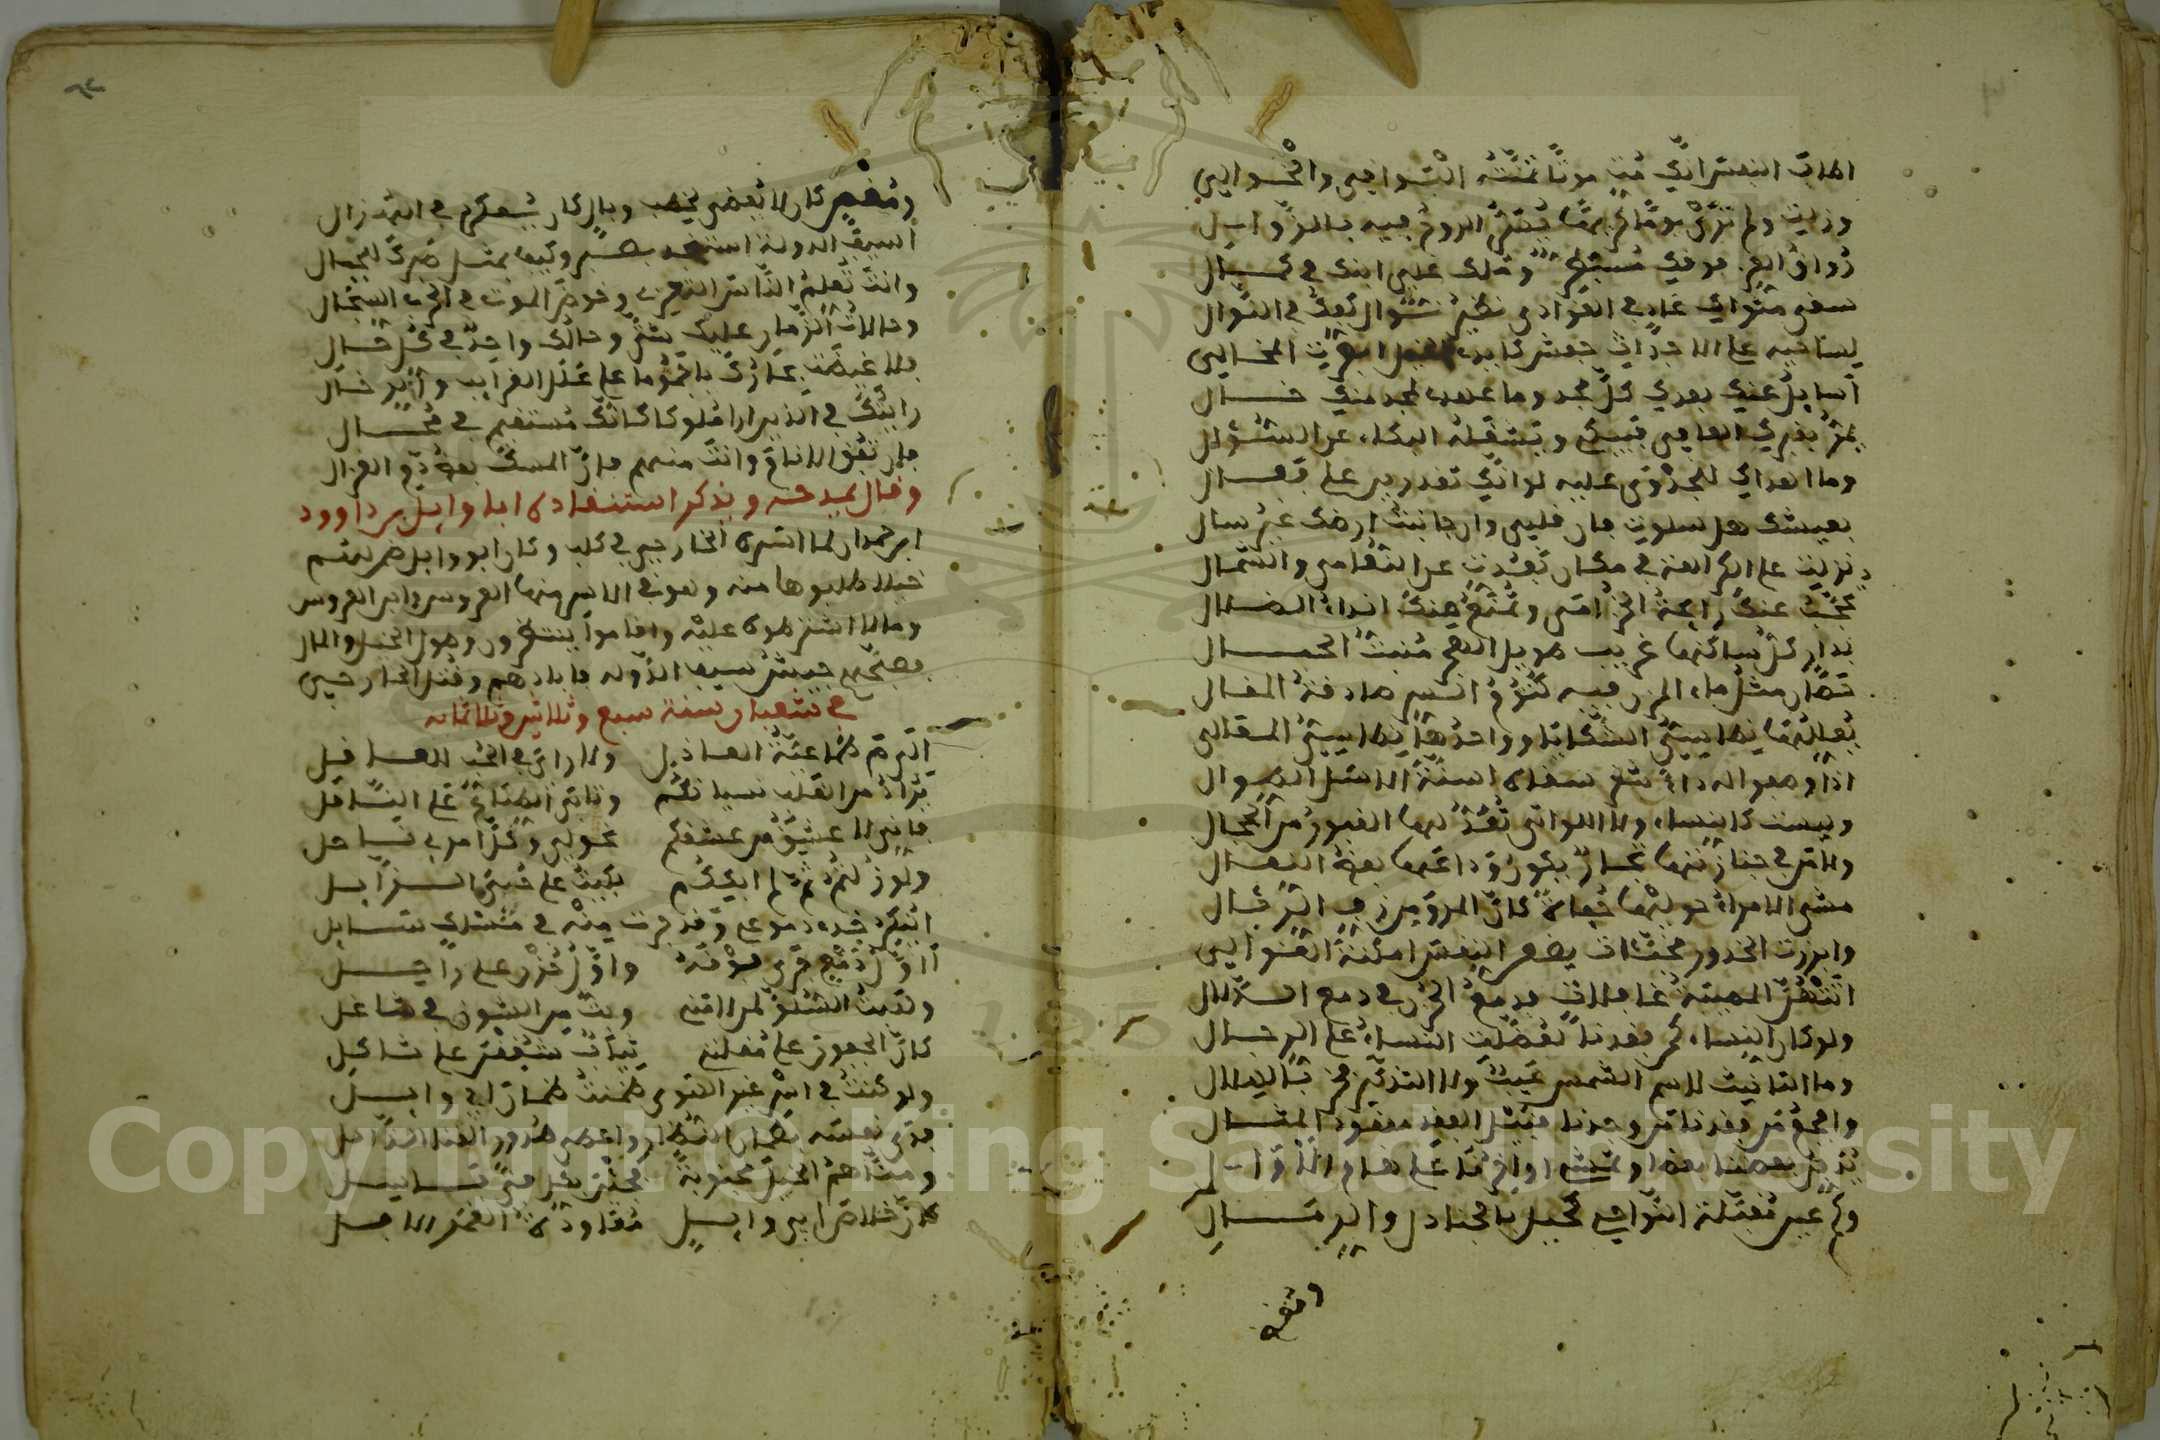 اطاب النفس انك مت موتا تمنته البواقي والخوالي
وزلت ولم تري يوما كريها يسر الروح فيه بالزوال
رواق العز فوقك مسبطر وملك علي ابنك في كمال
سقى مثواك غاد في الغوادي نظير نوال كفك في النوال
لساحيه على الاجداث حفش كايدي الخيل ابصرت المخالي
اسايل عنك بعدك كل مجد وما عهدي بمجد منك خال
يمر بقبرك العافي فيبكي ويشغله البكاء عن السؤال
وما اهداك للجدوى عليه لو انك تقدرين على فعال
بعيشك هل سلوت فان قلبي وان جانبت ارضك غير سال
نزلت على الكراهة في مكان بعدت عن النعامى والشمال
تحجب عنك رايحة الخزامى وتمنع منك انداء الطلال
بدار كل ساكنها غريب طويل الهجر منبت الحبال
حصان مثل ماء المزن فيه كتوم السر صادقة المقال
يعللها نطاسي الشكايا وواحدها نطاسي المعالي
اذا وصفوا له داء بثغر سقاه اسنة الاسل الطوال
وليست كالنساء ولا اللواتي تعد لها القبور من الحجال
ولا من في جنازتها تجار يكون وداعها نفض النعال
مشى الامراء حوليها حفاة كان المرو من زف الريال
وابرزت الخدور مخبئات يضعن النقس امكنة الغوالي
اتتهن المصيبة غافلات فدمع الحزن في دمع الدلال
ولو كان النساء كمن فقدنا لفضلت النساء على الرجال
وما التانيث لاسم الشمس عيب ولا التذكير فخر للهلال
وافجع من فقدنا من وجدنا قبيل الفقد مفقود المثال
يدفن بعضنا بعضا وتمشي اواخرنا على هام الاوالي
وكم عين مقبلة النواحي كحيل بالجنادل والرمال
ومغض
ومغض كان لا يغضي لخطب وبال كان يفكر في الهزال
اسيف الدولة استنجد بصبر وكيف بمثل صبرك للجبال
وانت تعلم الناس التعزي وخوض الموت في الحرب السجال
وحالات الزمان عليك شتى وحالك واحد في كل حال
فلا غيضت بحارك يا جموما على علل الغرايب والدخال
رايتك في الذين ارى ملوكا كانك مستقيم في محال
فان تفق الانام وانت منهم فان المسك بعض دم الغزال
وقال يمدحه ويذكر استنقاذه ابا وايل بن داوود
ابن حمدان لما اسره الخارجي في كلب وكان ابو وايل ضمن لهم
خيلا طلبوها منه وهو في الاسر منها العروس وابن العروس
ومالا اشترطوه عليه واقاموا ينتظرون وصول الخيل والمال
فصبحهم جيش سيف الدوله فابادهم وقتل الخارجي
في شعبان سنة سبع وثلاثين وثلاثمائه
الام طماعية العاذل ولا راي في الحب للعاقل
يراد من القلب نسيانكم وتابى الطباع على الناقل
واني لاعشق من عشقكم نحولي وكل امرئ ناحل
ولو زلتم ثم لم ابككم بكيت على حبي الزايل
اينكر خدي دموعي وقد جرت منه في مسلك سابل
ااول دمع جرى فوقه واول حزن على راحل
وهبت السلو لمن لامني وبت من الشوق في شاغل
كان الجفون على مقلتي ثياب شققن على ثاكل
ولو كنت في اسر غير الهوى ضمنت ضمان ابي وايل
فدى نفسه بضمان النضار واعطى صدور القنا الذابل
ومناهم الخيل مجنوبة فجئن بكل فتى باسل
كان خلاص ابي وايل معاودة القمر الافل